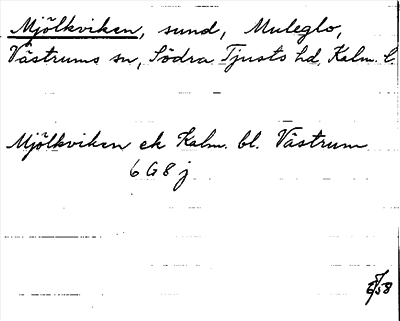 Mjölkviken, sund, Muleglo,
Västrums sn, Södra Tjusts hd, Kalm. l.
Mjölkviken ek Kalm. bl. Västrum
6 G 8 j